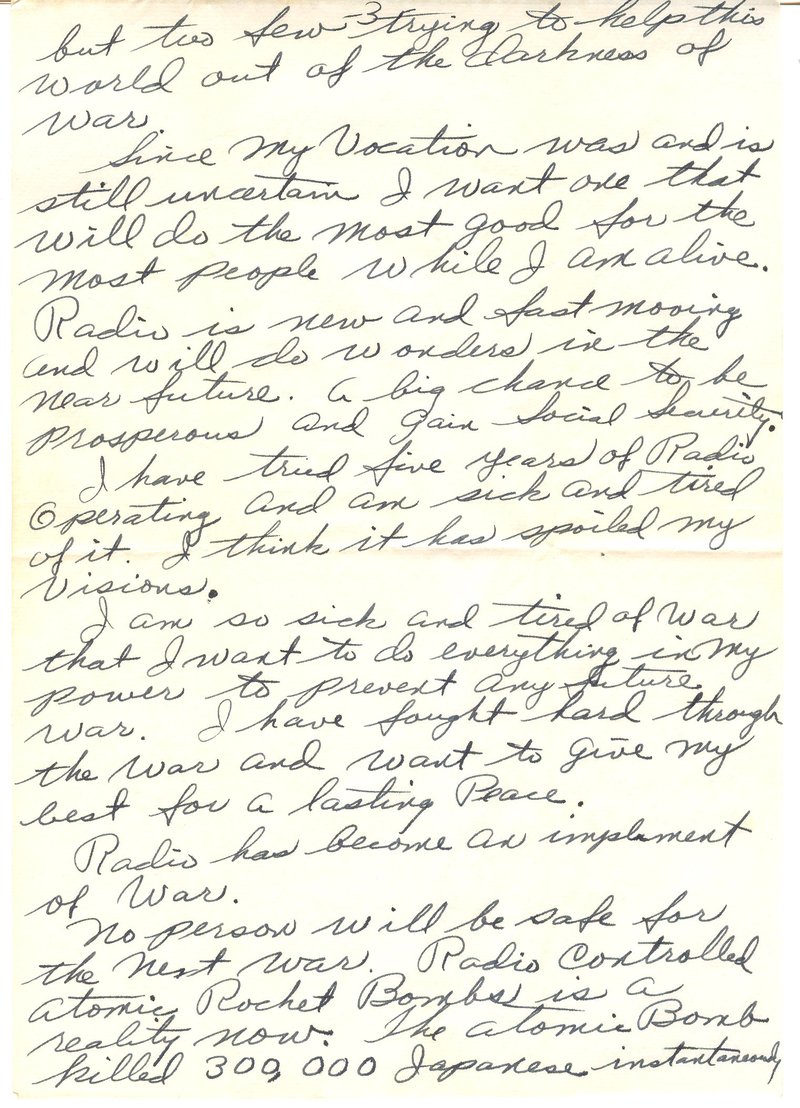 3
but two few trying to help this
world out of the darkness of
war
Since my Vocation was and is
still uncertain I want one that
will do the most good for the
most people while I am alive.
Radio is new and fast moving
and will do wonders in the
near future. A big chance to be
prosperous and gain Social Security.
I have tried five years of Radio
Operating and am sick and tired
of it. I think it has spoiled my
visions.
I am so sick and tired of War
that I want to do everything in my
power to prevent any future
war. I have fought hard through
the war and want to give my
best for a lasting Peace.
Radio has become an implement
of War.
No person will be safe for
the next war. Radio Controlled
atomic Rocket Bombs is a
reality now. The atomic Bomb
killed 300,000 Japanese instantaneously